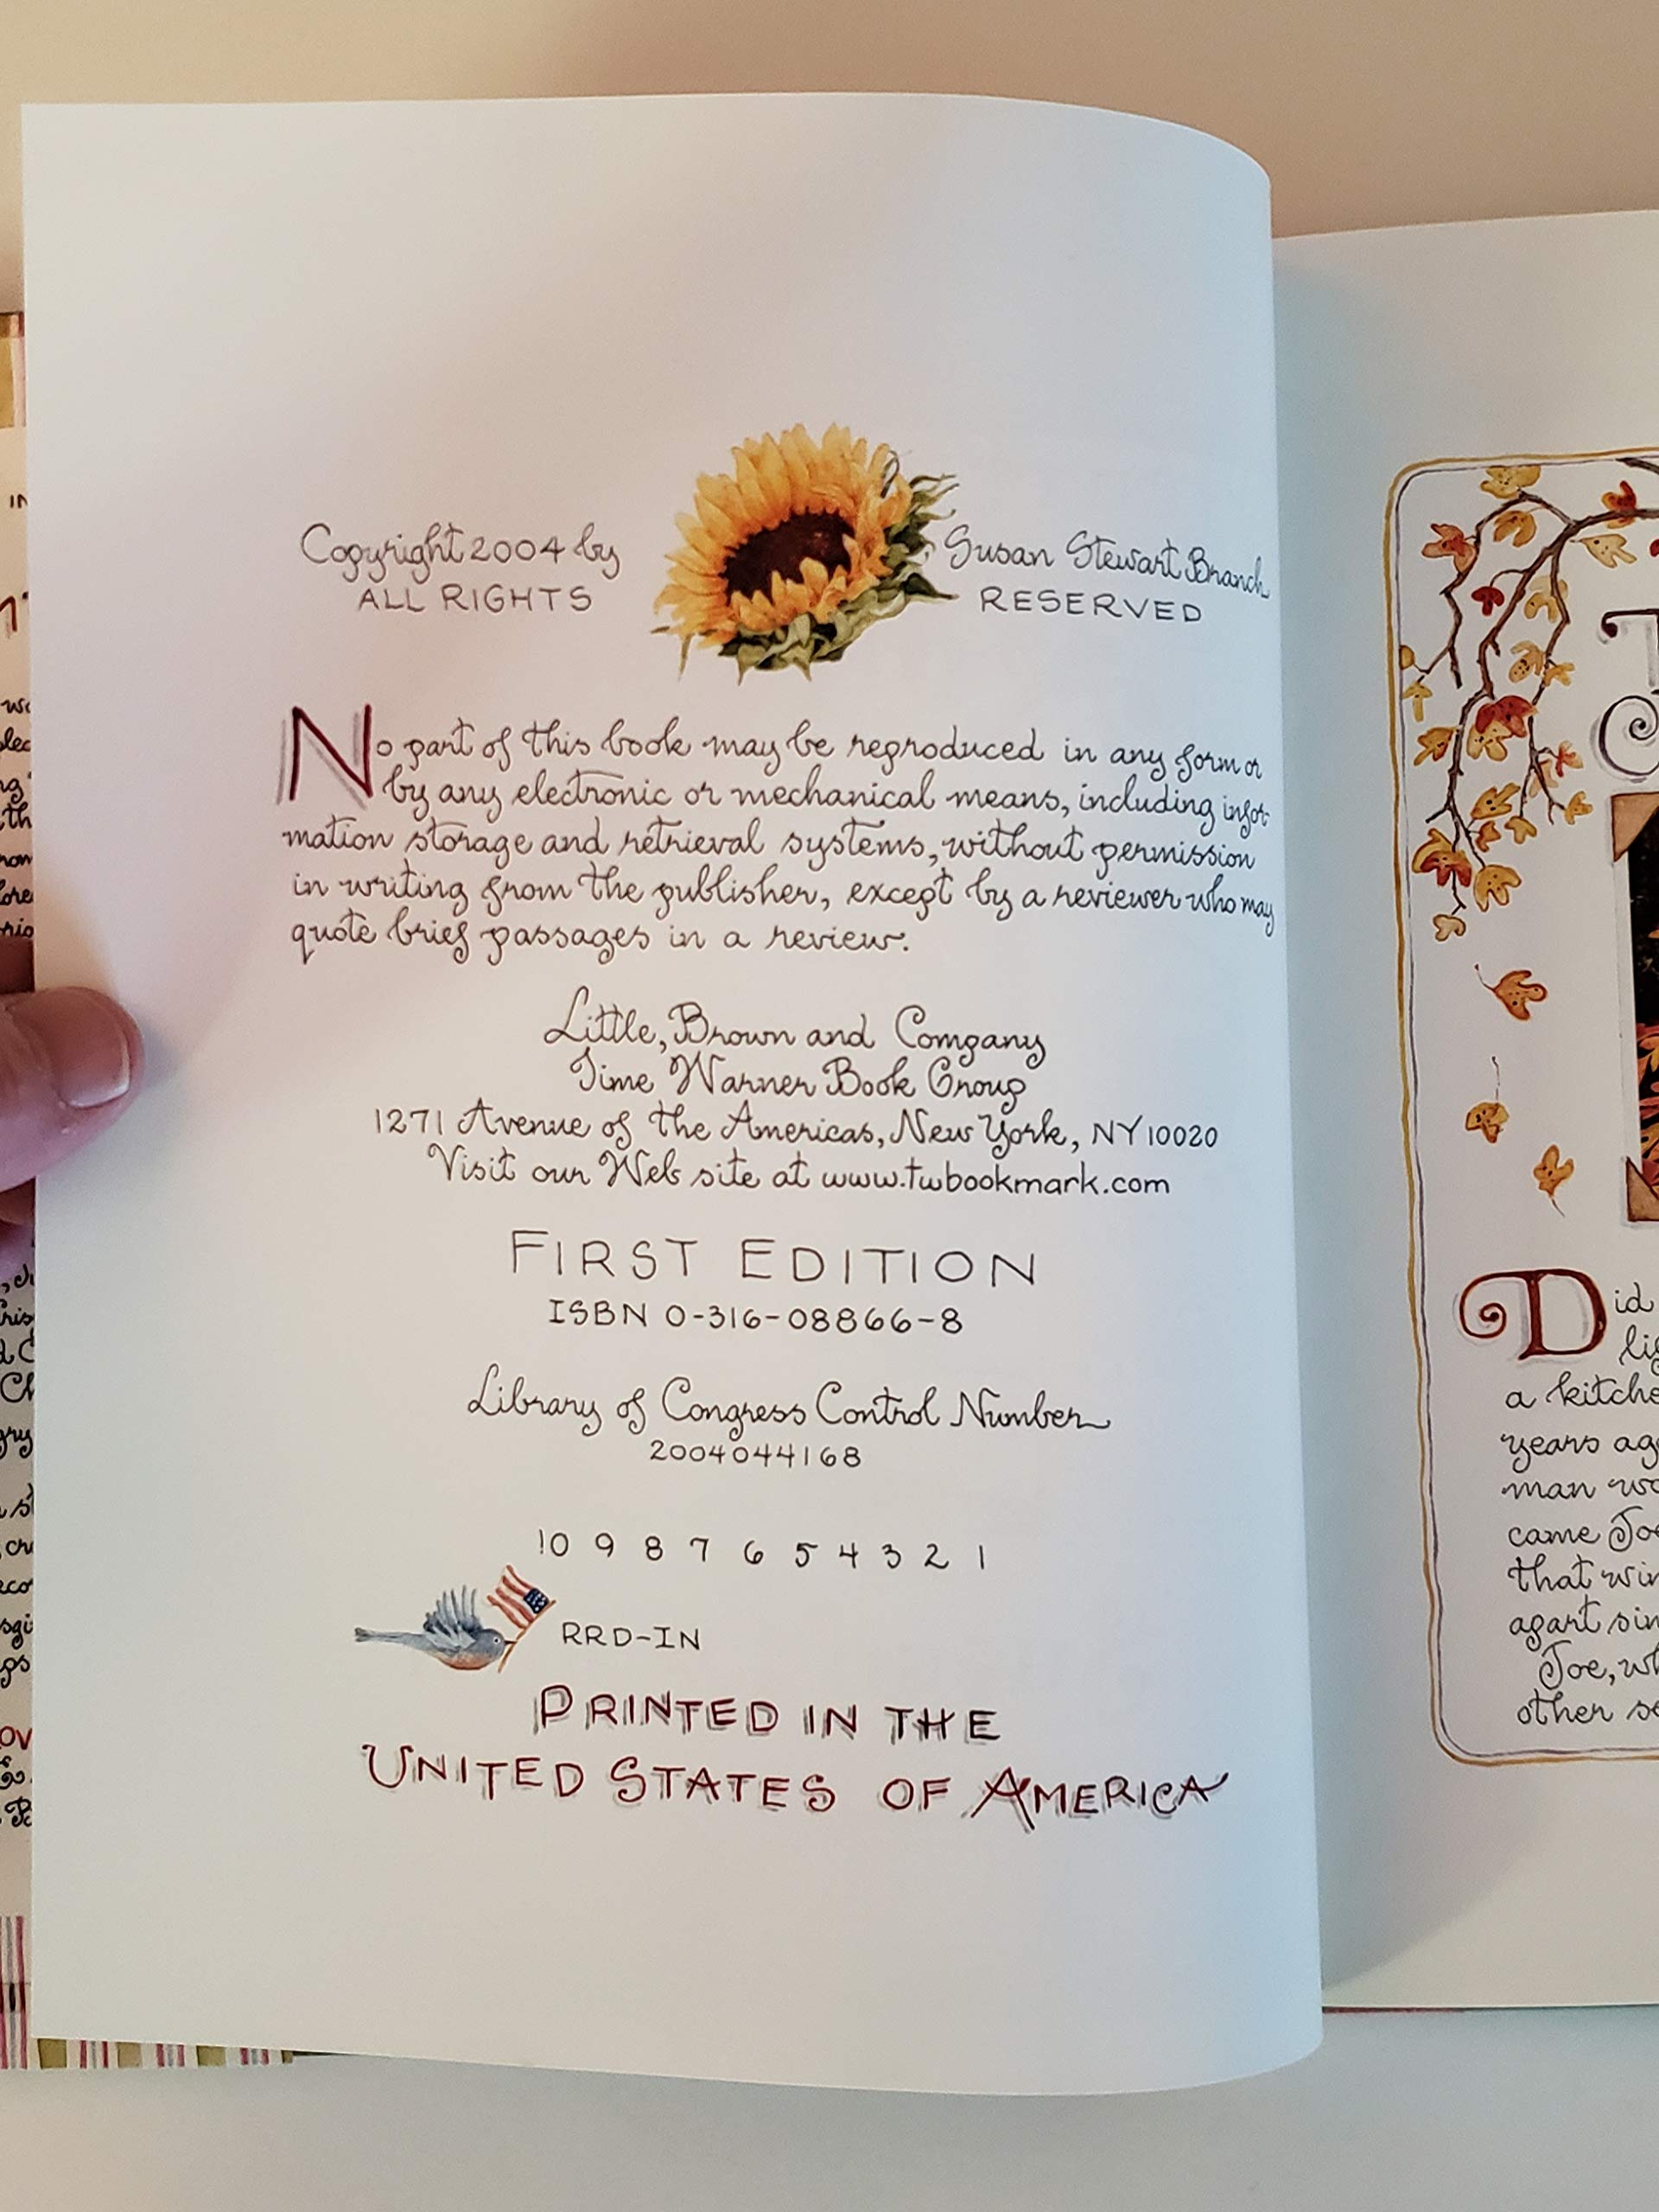 Copyright 2004 by Susan Stewart Branch
ALL RIGHTS RESERVED
No part of this book may be reproduced in any form or
by any electronic or mechanical means, including infor-
mation storage and retrieval systems, without permission
in writing from the publisher, except by a reviewer who may
quote brief passages in a review.
Little, Brown and Company
Time Warner Book Group
1271 Avenue of the Americas, New York, NY 10020
Visit our Web site at www.twbookmark.com
FIRST EDITION
ISBN 0-316-08866-8
Library of Congress Control Number
2004044168
10 9 8 7 6 5 4 3 2 1
RRD-IN
PRINTED IN THE
UNITED STATES OF AMERICA
Did
a kitche
years ag
man wo
came Joe
that win
apart sin
Joe, wh
other se